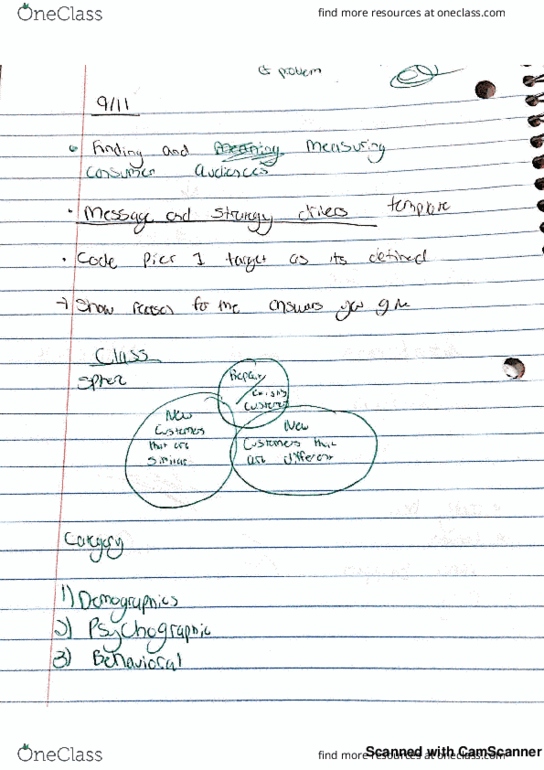 OneClass
find more resources at oneclass.com
problem
9/11
Finding and measuring
consumer audiences
Message and strategy drivers template
Code Pier 1 target as its defined
→ Show reason for the answers you give
Class
Repeat/
Existing
customers
New
customers
that are
similar
New
customers that
are different
Category
1) Demographics
2) Psychographic
3) Behavioral
OneClass
find more resources at oneclass.com
Scanned with CamScanner